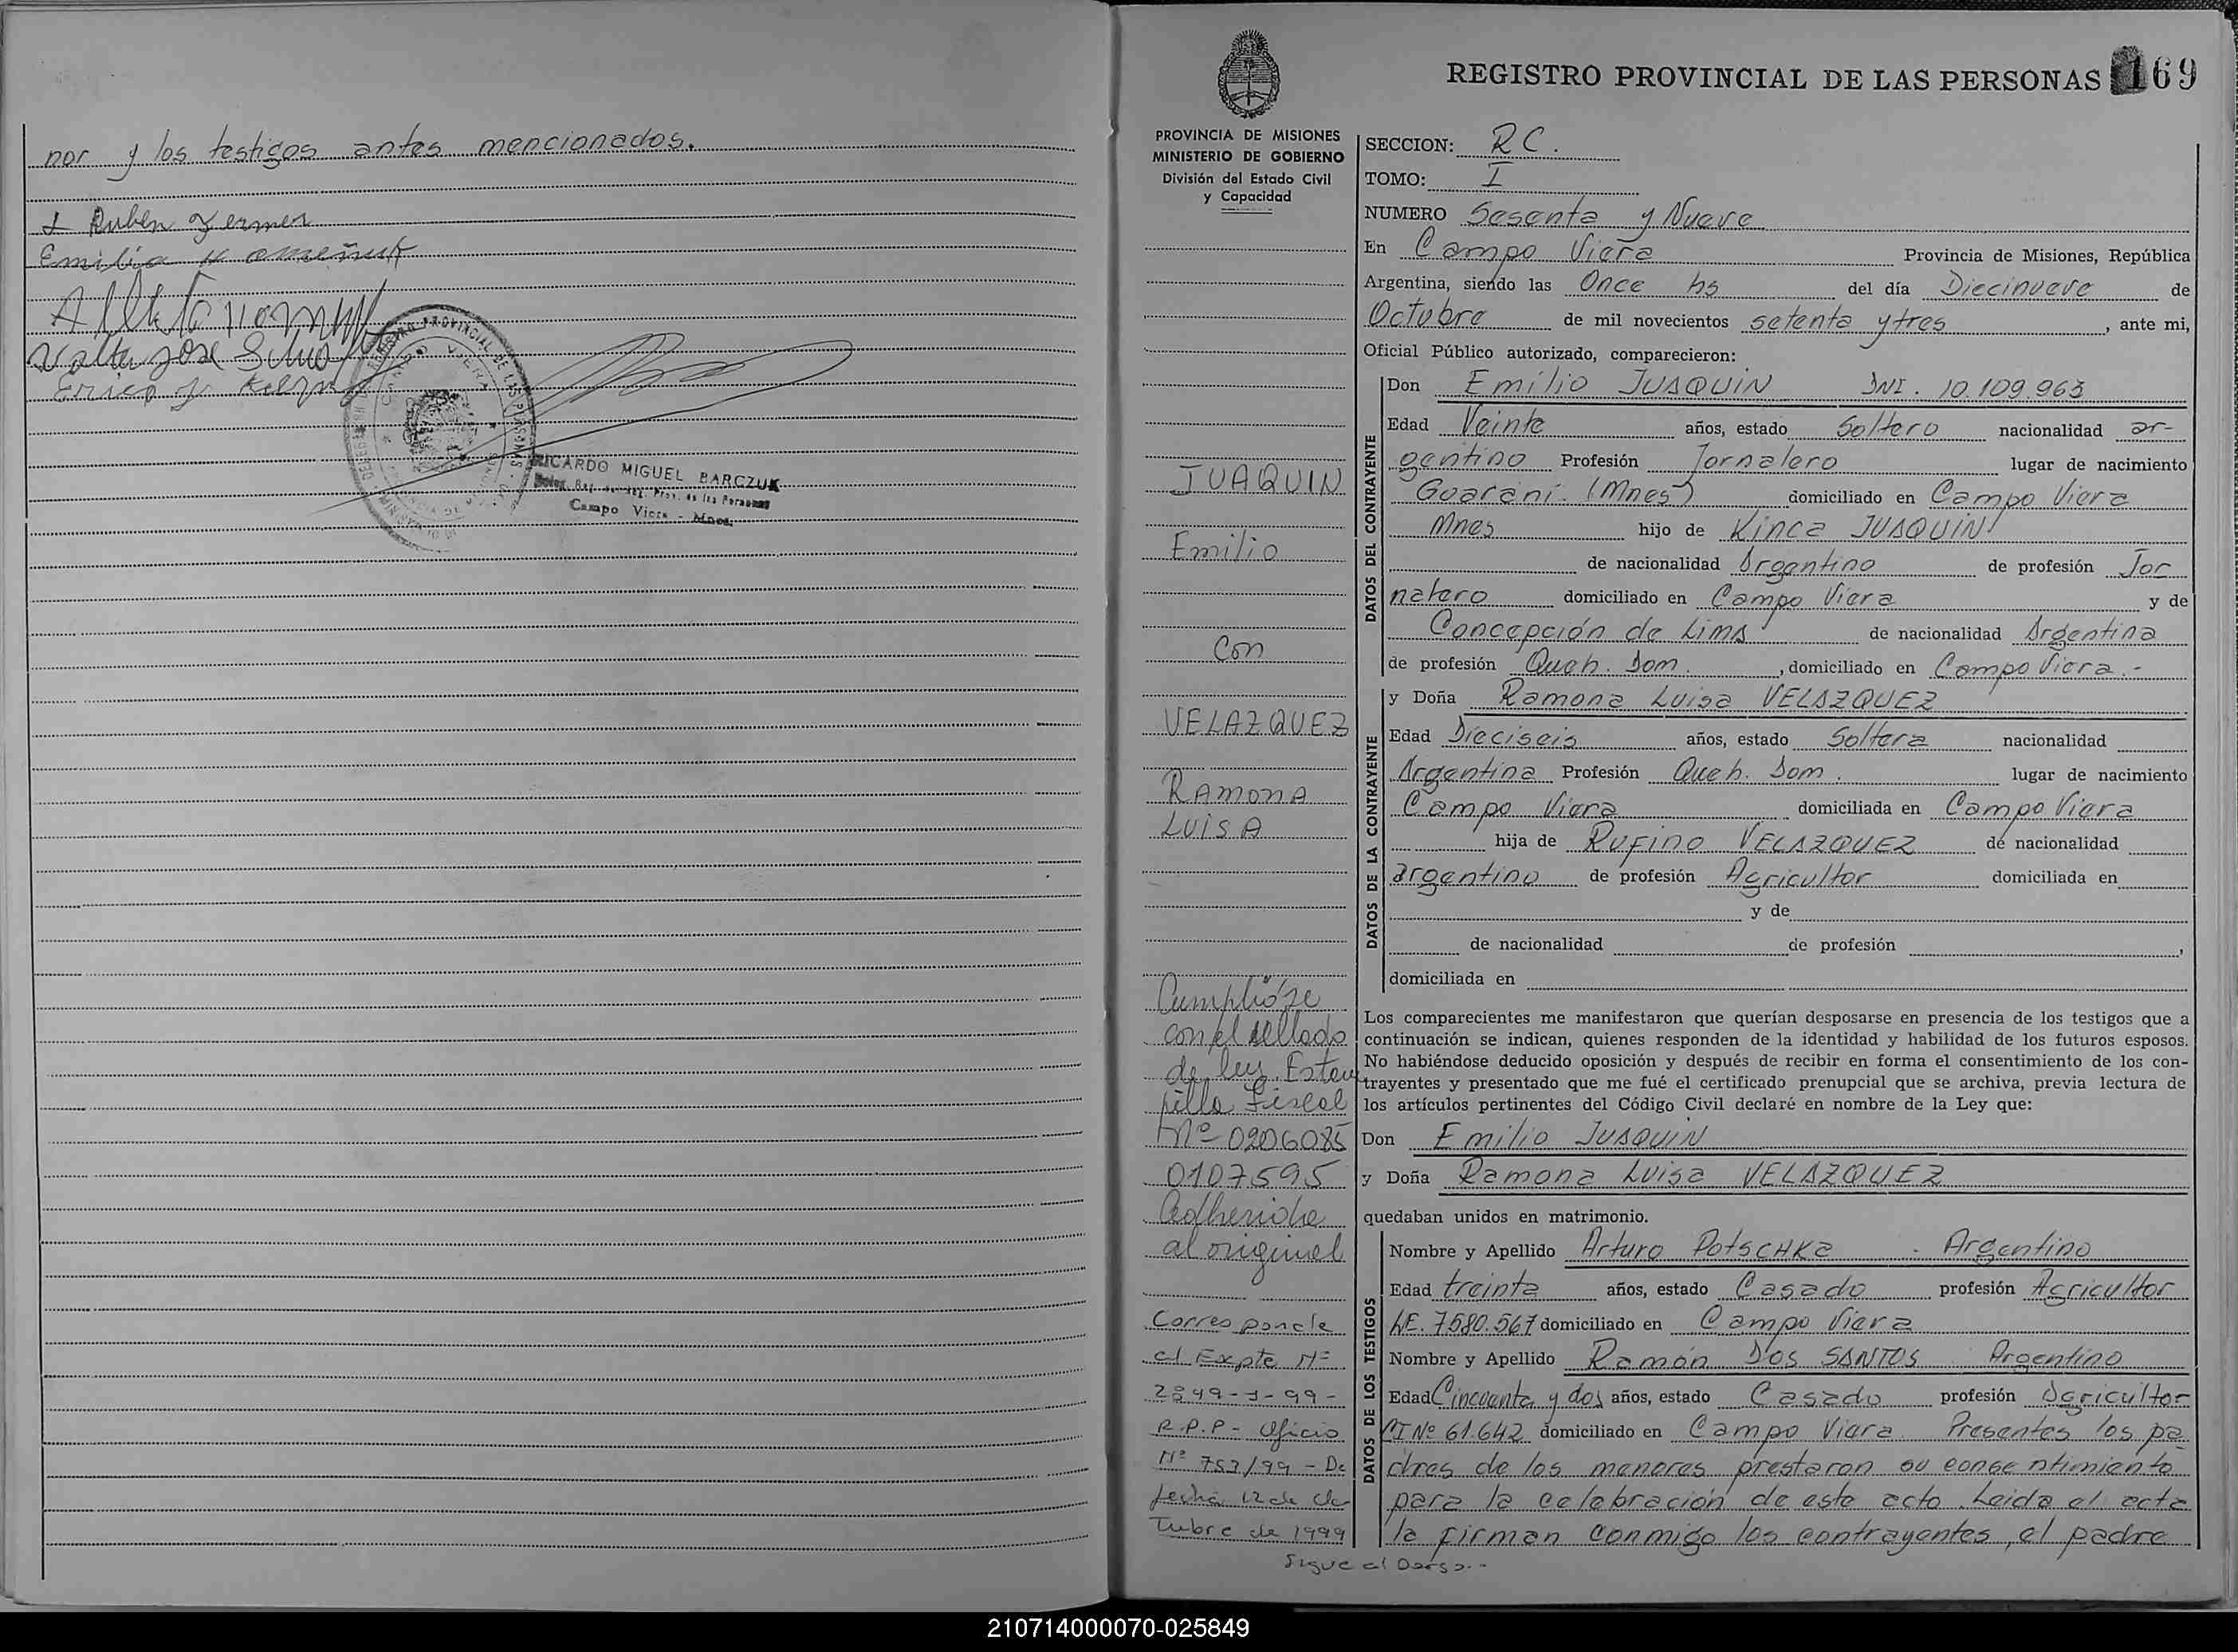 nor y los testigos antes mencionados.
Ruben
Emilia
Walter José Silva
REGISTRO PROVINCIAL DE LAS PERSONAS
RICARDO MIGUEL BARCZUK
Campo Viera - Mnes.
REGISTRO PROVINCIAL DE LAS PERSONAS 169
PROVINCIA DE MISIONES
MINISTERIO DE GOBIERNO
División del Estado Civil
y Capacidad
JUAQUIN
Emilio
Con
VELAZQUEZ
RAMONA
LUISA
Cumplióse
con el sellado
de ley. Estam
pilla Fiscal
Nº 0206085
0107595
Adherida
al original
Corresponde
al Expte Nº
2849-J-99-
R.P.P - Oficio
Nº 753/99 - De
fecha 12 de Oc
Tubre de 1999
Sigue al Dorso.-
SECCION: RC.
TOMO: I
NUMERO Sesenta y Nueve
En Campo Viera Provincia de Misiones, República
Argentina, siendo las Once hs del día Diecinueve de
Octubre de mil novecientos setenta y tres, ante mi,
Oficial Público autorizado, comparecieron:
DATOS DEL CONTRAYENTE
Don Emilio JUAQUIN DNI. 10.109.963
Edad Veinte años, estado Soltero nacionalidad ar-
gentino Profesión Jornalero lugar de nacimiento
Guaraní. (Mnes) domiciliado en Campo Viera
Mnes hijo de Kinca JUAQUIN
de nacionalidad Argentino de profesión Jor
nalero domiciliado en Campo Viera y de
Concepción de LIMA de nacionalidad Argentina
de profesión Queh. Dom. , domiciliado en Campo Viera.-
DATOS DE LA CONTRAYENTE
y Doña Ramona Luisa VELAZQUEZ
Edad Dieciseis años, estado Soltera nacionalidad
Argentina Profesión Queh. Dom. lugar de nacimiento
Campo Viera domiciliada en Campo Viera
hija de Rufino VELAZQUEZ de nacionalidad
argentino de profesión Agricultor domiciliada en
y de
de nacionalidad de profesión ,
domiciliada en
Los comparecientes me manifestaron que querían desposarse en presencia de los testigos que a
continuación se indican, quienes responden de la identidad y habilidad de los futuros esposos.
No habiéndose deducido oposición y después de recibir en forma el consentimiento de los con-
trayentes y presentado que me fué el certificado prenupcial que se archiva, previa lectura de
los artículos pertinentes del Código Civil declaré en nombre de la Ley que:
Don Emilio JUAQUIN
y Doña Ramona Luisa VELAZQUEZ
quedaban unidos en matrimonio.
DATOS DE LOS TESTIGOS
Nombre y Apellido Arturo POTSCHKA - Argentino
Edad treinta años, estado Casado profesión Agricultor
LE. 7580.567 domiciliado en Campo Viera
Nombre y Apellido Ramón DOS SANTOS Argentino
Edad Cincuenta y dos años, estado Casado profesión Agricultor
CI Nº 61.642 domiciliado en Campo Viera Presentes los pa
dres de los menores prestaron su consentimiento
para la celebración de este acto. Leida el acta
la firman conmigo los contrayentes, el padre
210714000070-025849